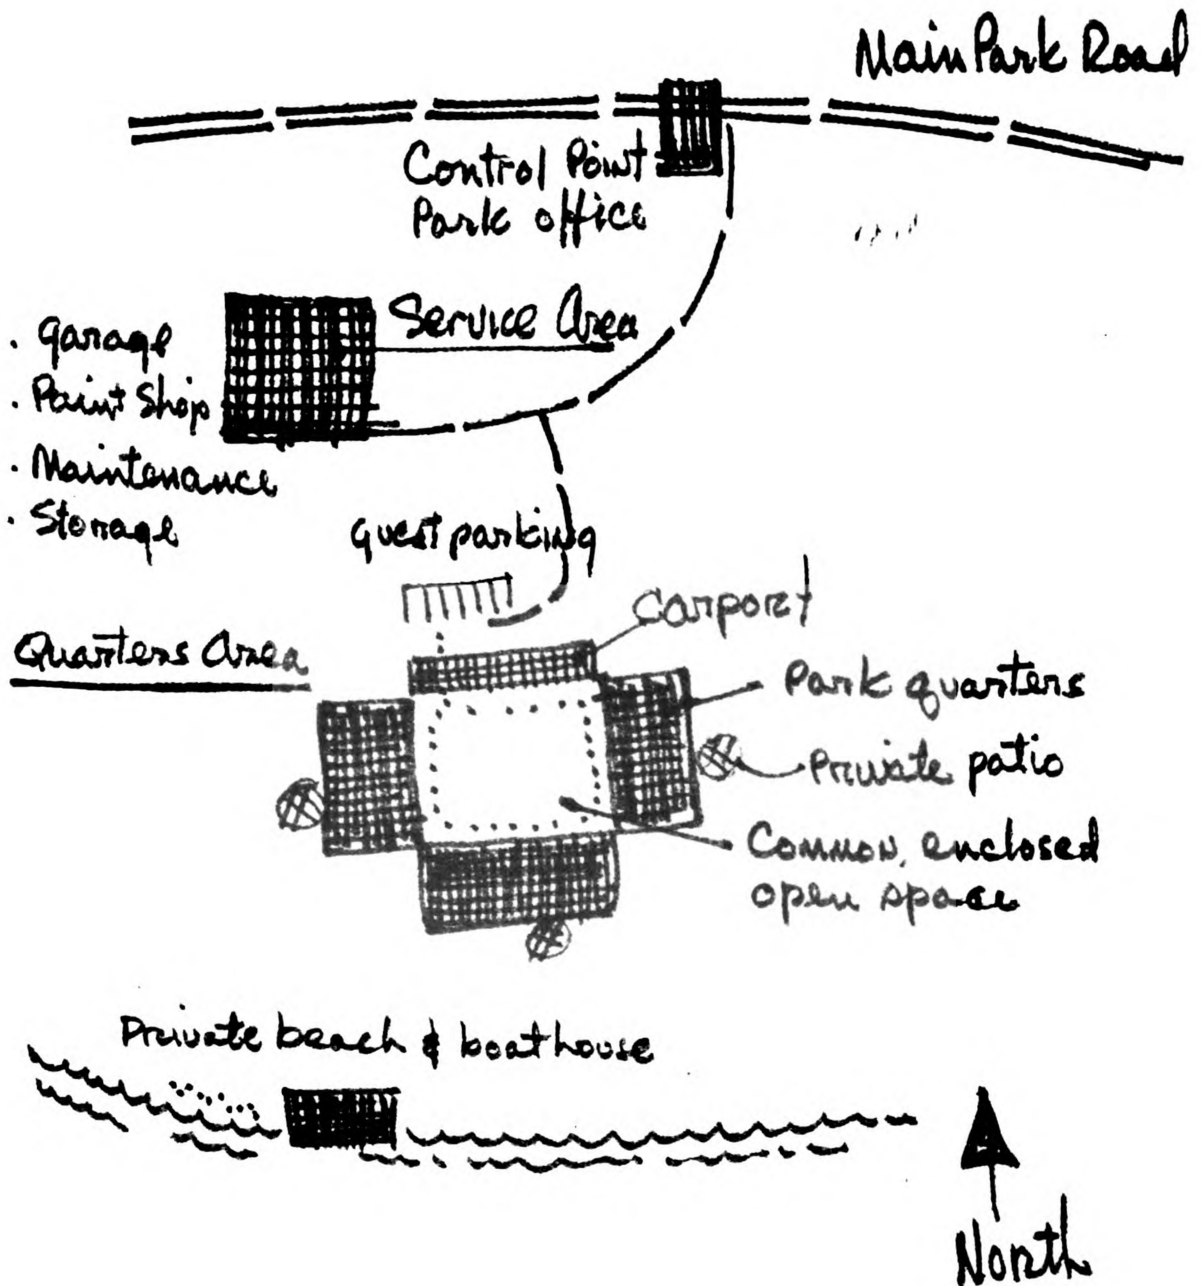 Main Park Road
Control Point
Park office
Service Area
· garage
· Paint Shop
· Maintenance
· Storage
guest parking
Carport
Quarters Area
Park quarters
Private patio
Common, enclosed
open space
Private beach & boathouse
North